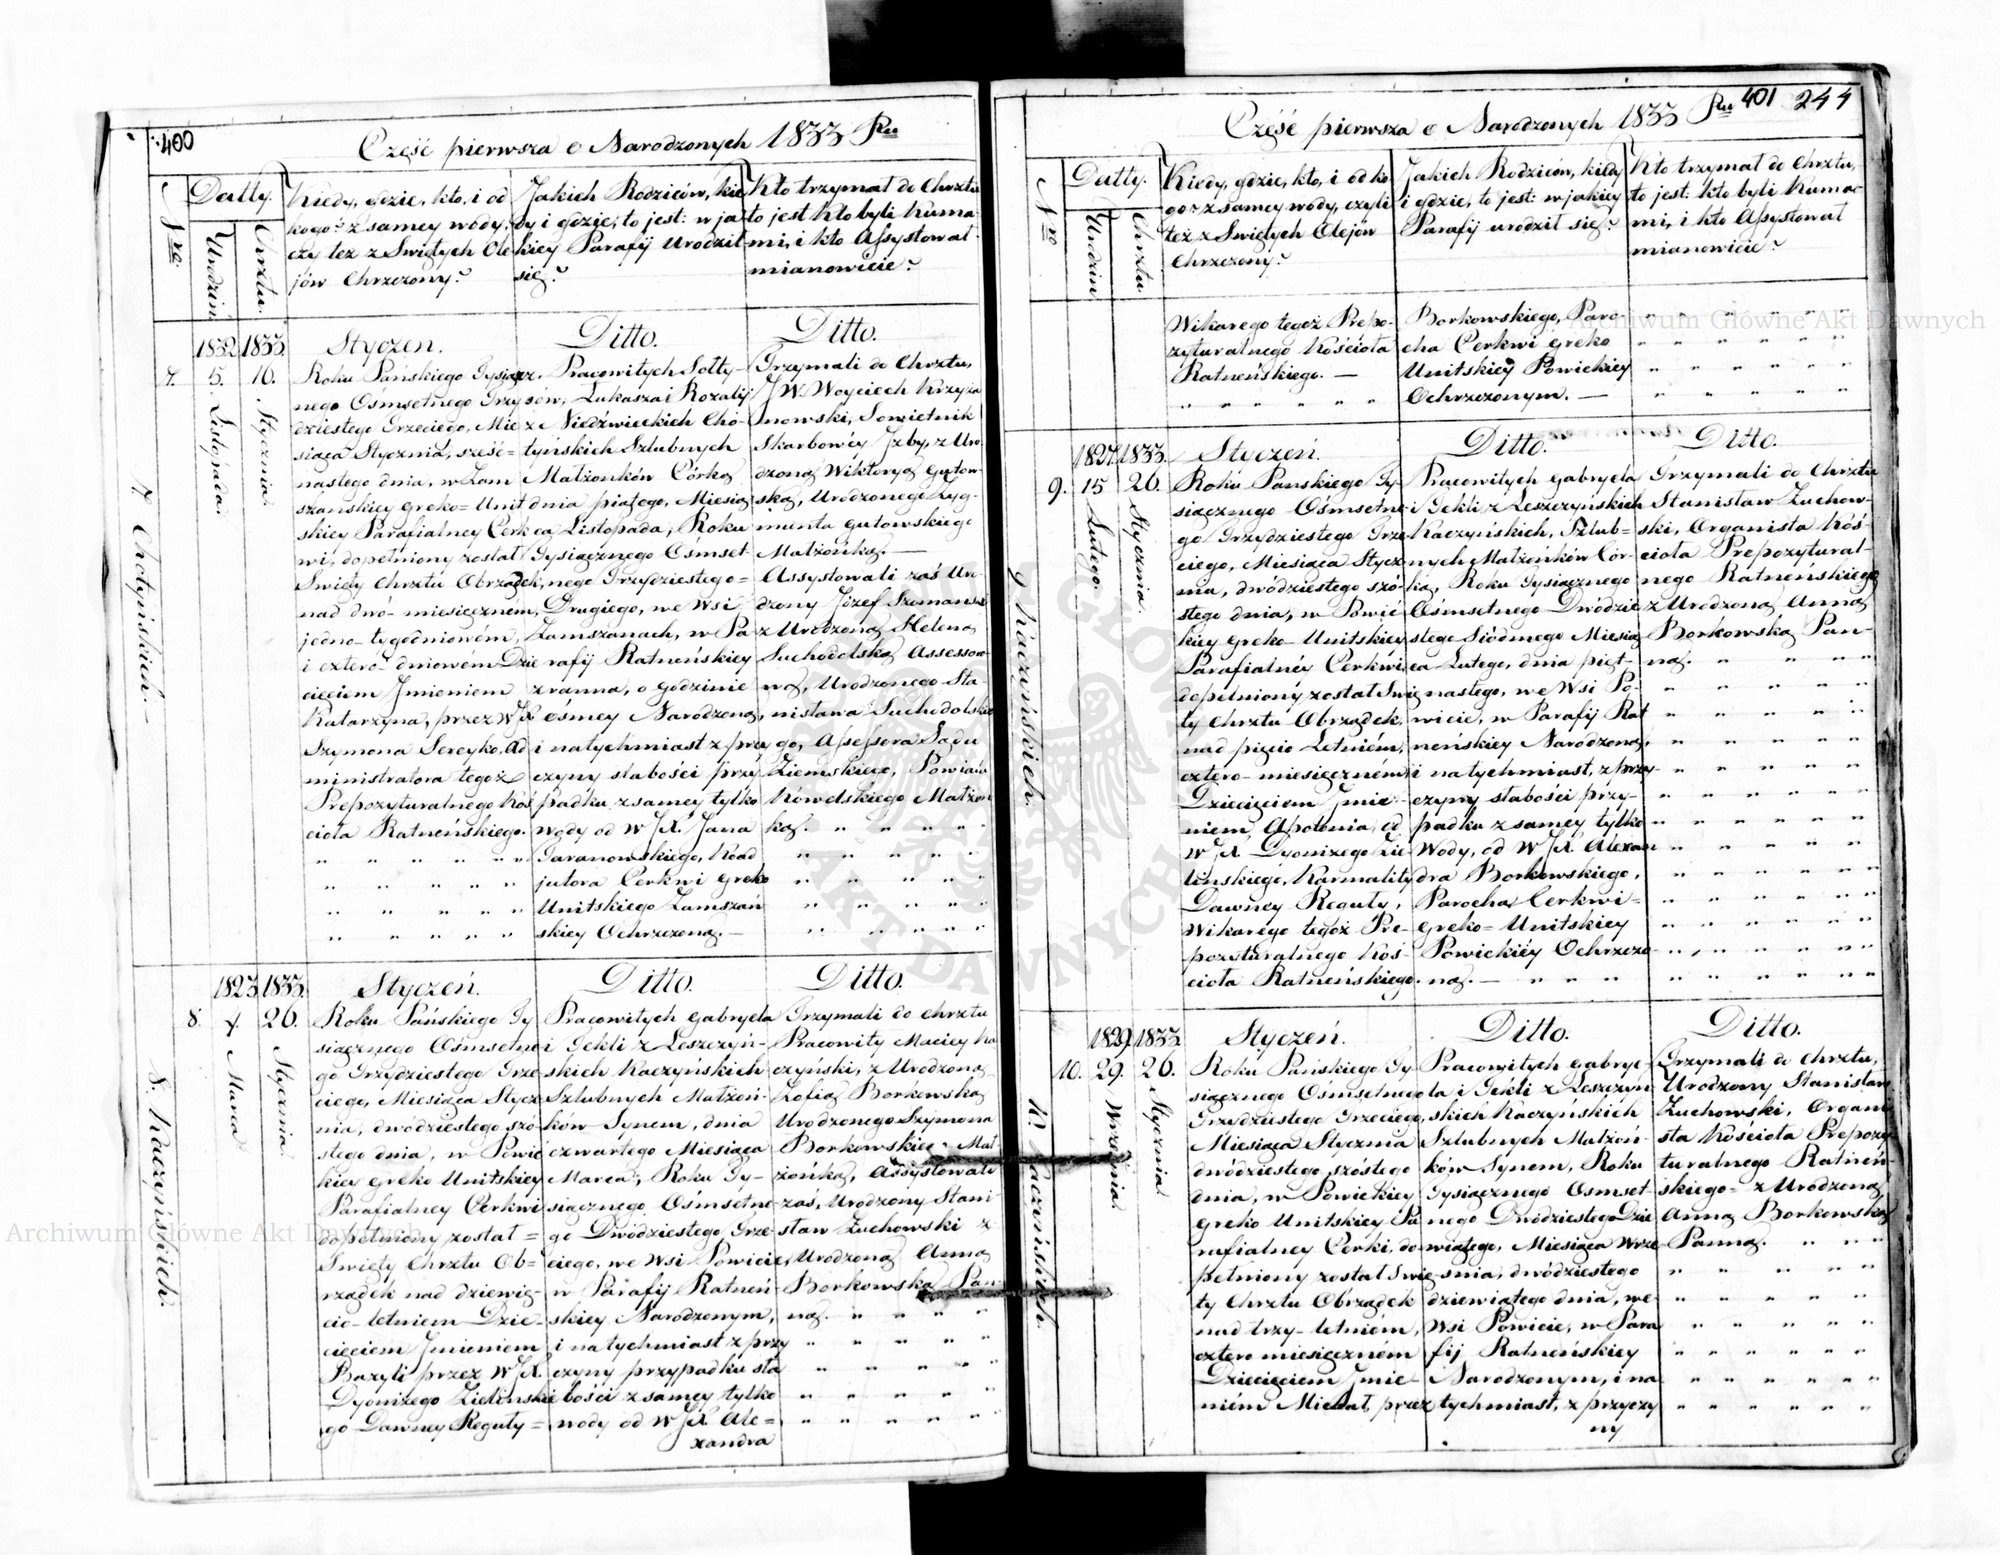 400
Część pierwsza o Narodzonych 1833 Ru
Nro.
Datty.
Urodzin
Chrztu.
Kiedy, gdzie, kto, i od
kogo? z samey wody,
czy też z Swiętych Ole
jów Chrzczony?
Jakich Rodziców, kie
dy i gdzie, to jest: w ja
kiey Parafij Urodził
się?
Kto trzymał do Chrztu
to jest kto byli Kuma-
mi, i kto Assystował
mianowicie?
1832. 1833.
7. 5. 16.
Listopada.
Stycznia.
7. Chotyńskich.
Styczeń.
Roku Pańskiego Tysiącz
nego Ośmsetnego Trzy
dziestego Trzeciego, Mie
siąca Stycznia, sześć=
nastego dnia, w Zam
szańskiey Greko=Unit
skiey Parafialney Cerk
wi, dopełniony został
Swięty Chrztu Obrządek,
nad dwó- miesięcznem,
jedno- tygodniowém,
i cztero- dniowém Dzie
cięciem Imieniem
Katarzyna, przez W JX
Szymona Sereyko, Ad
ministratora tegoż
Prepozyturalnego Koś
cioła Ratneńskiego.
Ditto.
Pracowitych Sołty-
sów, Łukasza i Rozalij
z Niedźwieckich Cho-
tyńskich Szlubnych
Małżonków Córką
dnia piątego, Miesią
ca Listopada, Roku
Tysiącznego Ośmset-
nego Trzydziestego=
Drugiego, we Wsi
Zamszanach, w Pa
rafij Ratneńskiey
zranna, o godzinie
ósmey Narodzoną,
i natychmiast z przy
czyny słabości przy
padku, z samey tylko
wody od W JX. Jana
Taranowskiego, Koad
jutora Cerkwi Greko
Unitskiego Zamszań
skiey Ochrzczoną.—
Ditto.
Trzymali do Chrztu,
JW. Woyciech Krzyża
nowski, Sowietnik
Skarbowéy Izby, z Uro-
dzoną Wiktoryą Gutow-
ską, Urodzonego Zyg-
munta Gutowskiego
Małżonką.—
Assystowali zaś Uro-
dzony Józef Szemansk
z Urodzoną Heleną
Suchodolską Assessow
wą, Urodzonego Sta-
nisława Suchodolskie
go, Assessora Sądu
Ziemskiego, Powiatu
Kowelskiego Małżon
ką. " " " " "
1823. 1833.
8. 4. 26.
Marca
Stycznia.
8. Kaczyńskich.
Styczeń.
Roku Pańskiego Ty
siącznego Ośmsetne
go Trzydziestego Trze
ciego, Miesiąca Stycz
nia, dwódziestego szó-
stego dnia, w Powić
kiey Greko Unitskiey
Parafialney Cerkwi
dopełniony został=
Swięty Chrztu Ob=
rządek nad dziewię-
cio- letniem Dzie-
cięciem Imieniem
Bazyli przez W JX.
Dyonizego Zielinskie
go Dawney Reguły=
Ditto.
Pracowitych Gabryela
i Tekli z Leszczyń-
skich Kaczyńskich
Szlubnych Małżon-
ków Synem, dnia
czwartego Miesiąca
Marca, Roku Ty-
siącznego Ośmsetne-
go Dwódziestego Trze-
ciego, we Wsi Powicie,
w Parafij Ratneń-
skiey Narodzonym,
i natychmiast z przy
czyny przypadku sła
bości z samey tylko
wody od W JX. Ale=
xandra
Ditto.
Trzymali do Chrztu
Pracowity Maciey Ka
czyński, z Urodzoną
Zofią Borkowską
Urodzonego Szymona
Borkowskiego Mał
żonką, Assystowali
zaś, Urodzony Stani-
sław Żuchowski z
Urodzoną Anną
Borkowską Pan-
ną. " " " "
401 244
Część pierwsza o Narodzonych 1833 Ru
Nro
Datty.
Urodzin
Chrztu.
Kiedy, gdzie, kto, i od ko
go? z samey wody, czyli
też z Swiętych Olejów
Chrzczony?
Jakich Rodziców, kiedy
i gdzie, to jest: w jakiey
Parafij urodził się?
Kto trzymał do Chrztu,
to jest: kto byli Kuma-
mi, i kto Assystował
mianowicie?
Wikarego tegoż Prepo-
zyturalnego Kościoła
Ratneńskiego.—
Borkowskiego, Paro-
cha Cerkwi Greko
Unitskiey Powickiey
Ochrzczonym.—
1827. 1833.
9. 15 26.
Lutego.
Stycznia.
9. Kaczyńskich.
Styczeń.
Roku Pańskiego Ty-
siącznego Ośmsetne
go Trzydziestego Trze
ciego, Miesiąca Stycz
nia, dwódziestego szó-
stego dnia, w Powić
kiey Greko Unitskiey
Parafialnéy Cerkwi
dopełniony został Swię
ty Chrztu Obrządek,
nad pięcio Letniém,
cztero- miesięczném
Dziecięciem Imie-
niem, Apolonia, od
W JX. Dyonizego Zie
linskiego, Karmality
Dawney Reguły,
Wikarego tegoż Pre-
pozyturalnego Koś-
cioła Ratneńskiego.
Ditto.
Pracowitych Gabryela
i Tekli z Leszczyńskich
Kaczyńskich, Szlub=
nych Małżonków Cór-
ką, Roku Tysiącznego
Ośmsetnego Dwódzie
stego Siódmego Miesią
ca Lutego, dnia pięt-
nastego, we Wsi Po-
wicie, w Parafij Rat
neńskiey Narodzoną,
i natychmiast, z przy-
czyny słabości przy-
padku z samey tylko
Wody, od W JX. Alexan
dra Borkowskiego,
Parocha Cerkwi=
Greko=Unitskiey
Powickiéy Ochrzczo
ną.—
Ditto.
Trzymali do Chrztu
Stanisław Żuchow-
ski, Organista Koś-
cioła Prepozytural-
nego Ratneńskiego
z Urodzoną Anną
Borkowską Pan-
ną. " " " "
1829. 1833.
10. 29. 26.
Września.
Stycznia.
10. Kaczyńskich.
Styczeń.
Roku Pańskiego Ty-
siącznego Ośmsetnego
Trzydziestego Trzeciego,
Miesiąca Stycznia
dwódziestego szóstego
dnia, w Powickiey
Greko Unitskiey Pa
rafialney Cerki, do
pełniony został Swię-
ty Chrztu Obrządek
nad trzy- letniém,
cztero miesięczném
Dziecięciem Imie-
niém Michał, przez
Ditto.
Pracowitych Gabrye-
la i Tekli z Leszczyń
skich Kaczyńskich
Szlubnych Małżon-
ków Synem, Roku
Tysiącznego Ośmset-
nego Dwódziestego Dzie
wiątego, Miesiąca Wrze-
śnia, dwódziestego
dziewiątego dnia, we
Wsi Powicie, w Para
fij Ratneńskiey
Narodzonym, i na
tychmiast, z przyczy
ny
Ditto.
Trzymali do Chrztu,
Urodzony Stanisław
Żuchowski, Organi
sta Kościoła Prepozy-
turalnego Ratneń-
skiego= z Urodzoną
Anną Borkowską
Panną. " " "
Archiwum Główne Akt Dawnych
Archiwum Główne Akt Dawnych